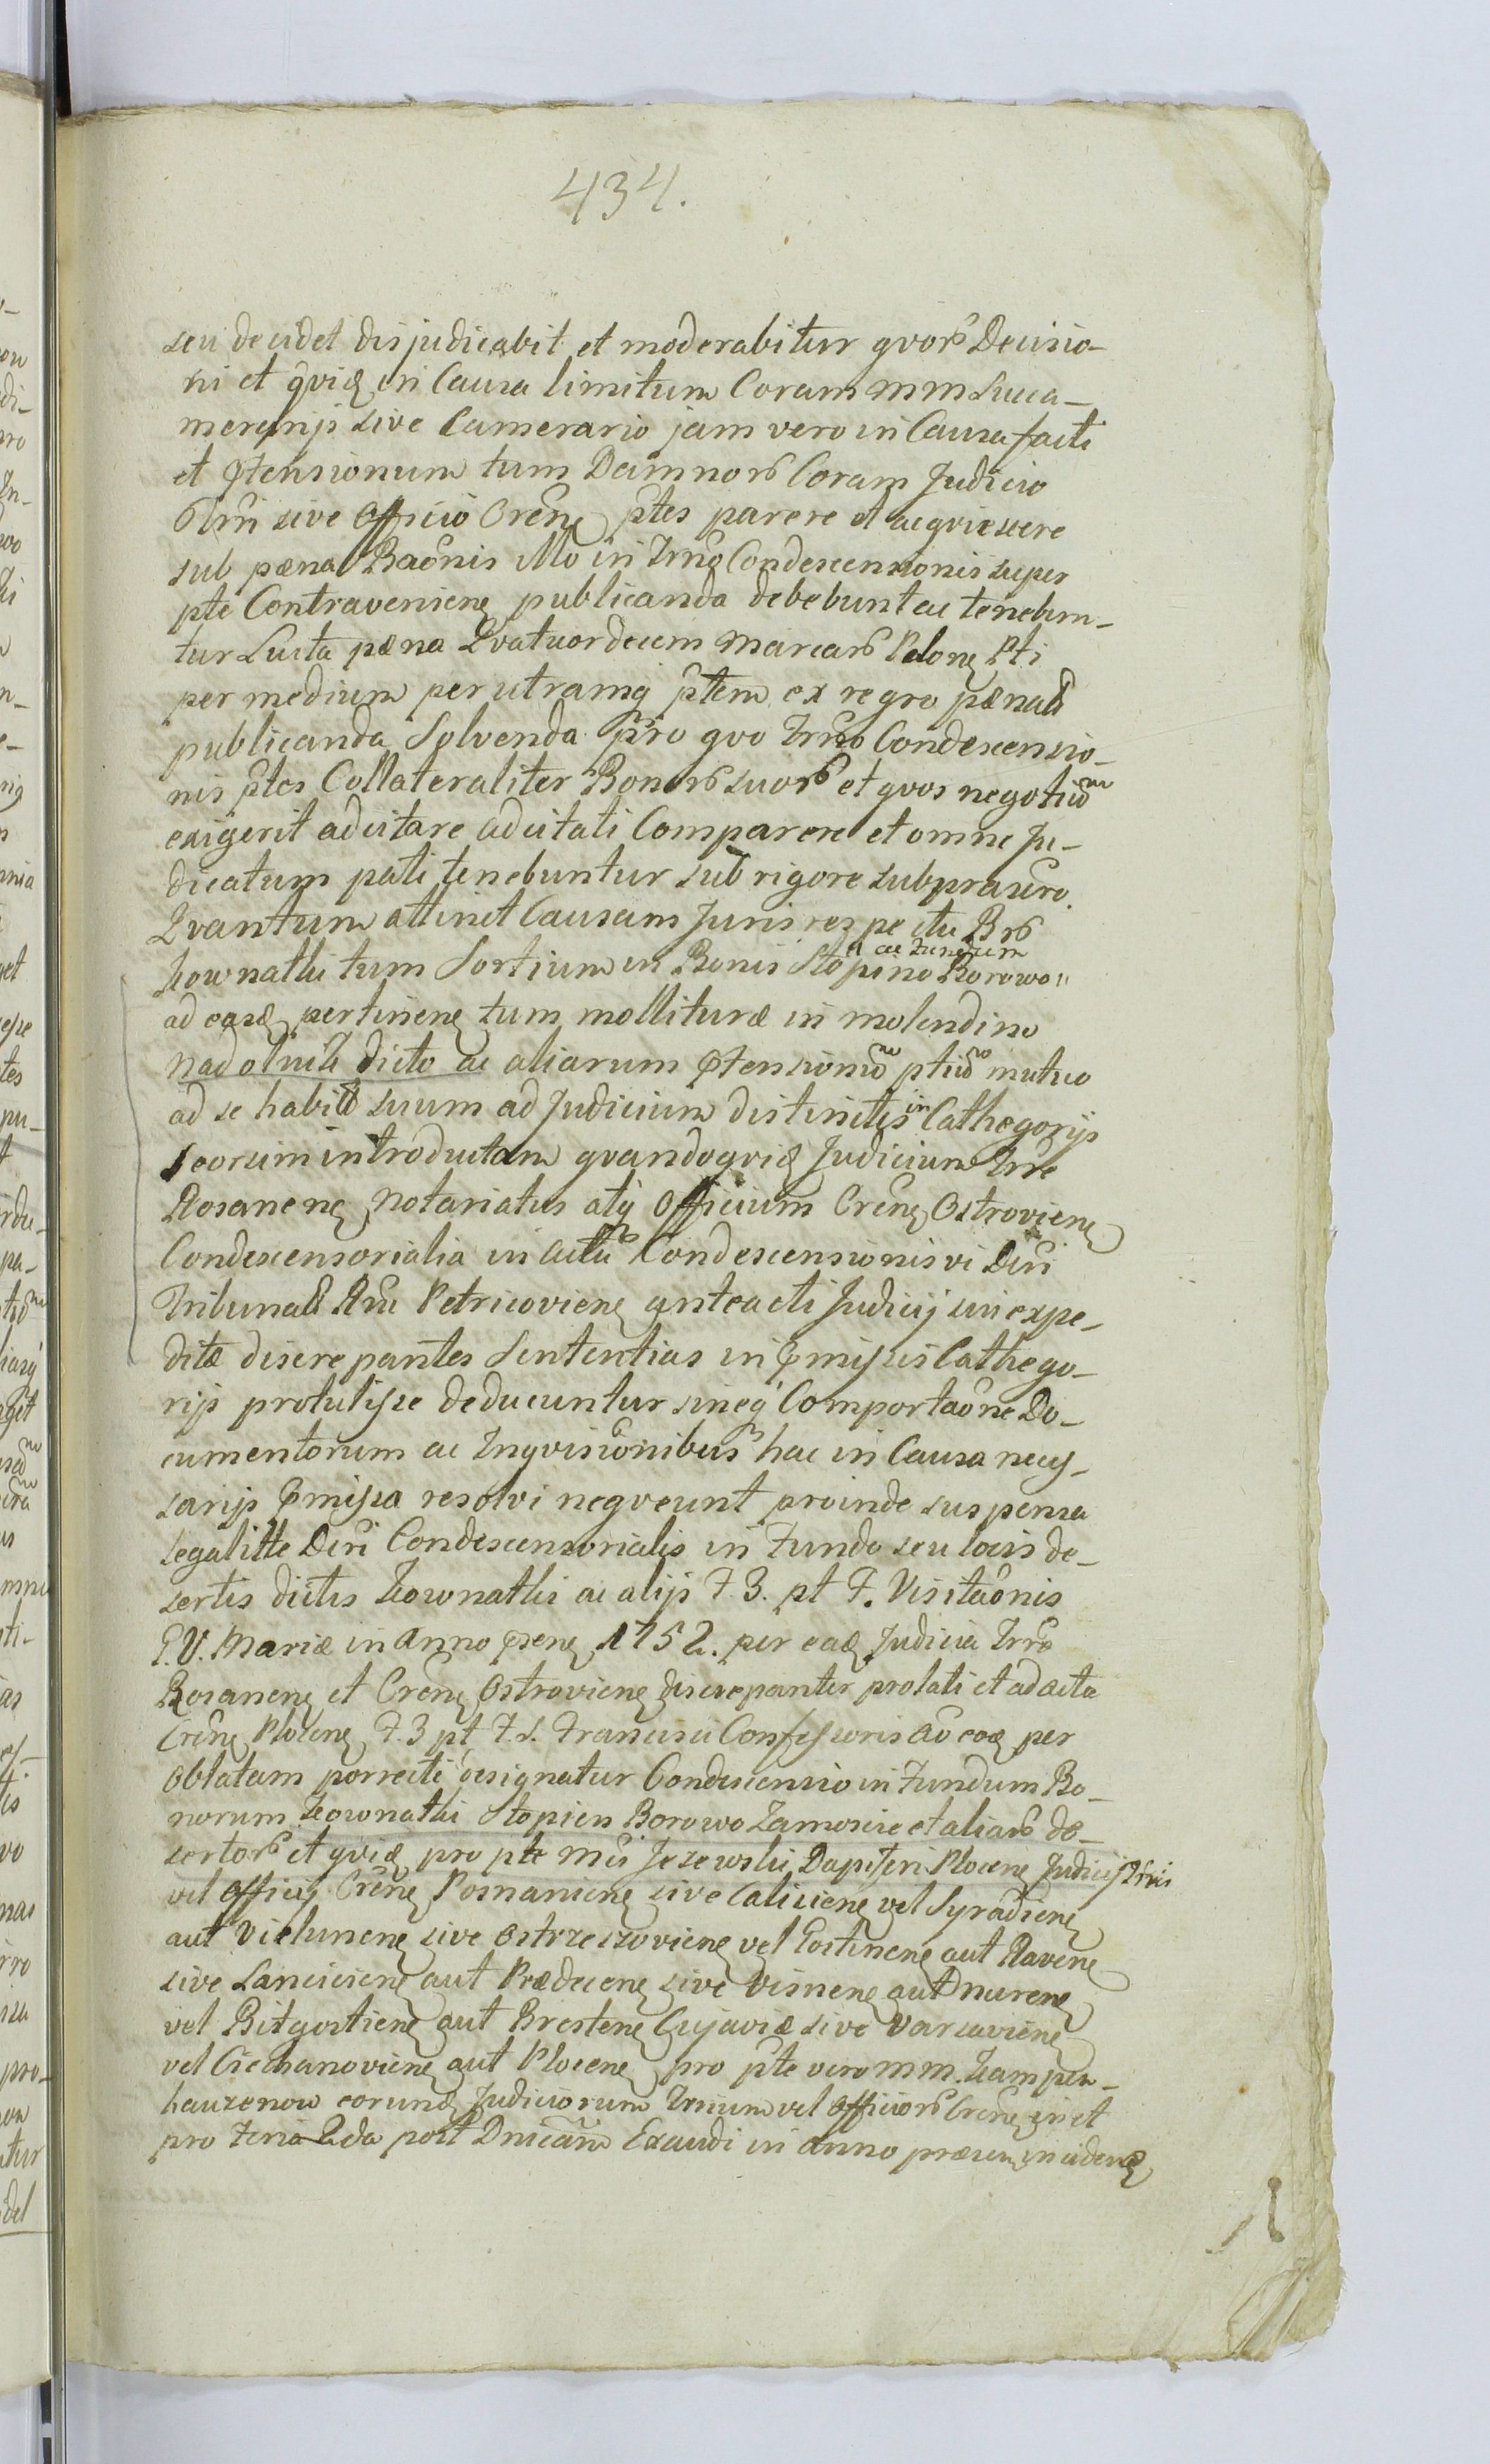 434.
seu decidet disjudicabit et moderabitur qvorb Decisio-
ni et qvidē in Causa limitum Coram mm Succa-
merarijs sive Camerario jam vero in Causa facti
et ptensionum tum Damnorb Coram Judicio
Trri sive Officio Crenē ptes parere et acqviescere
sub pæna Baonis illo in Trno Condescensionis super
pte Contravenienē publicanda debebunt ac tenebun-
tur Lucta pæna Qvatuordecem Marcarb Polonē Pti
per medium per utramq ptem ex regro pænali
publicanda Solvenda pro qvo Trno Condescensio-
nis ptes Collateraliter Bonorb suorb et qvos negotium
exigerit adcitare adcitati Comparere et omne Ju-
dicatum pati tenebuntur sub rigore subprascro.
Qvantum attinet Causam Juris respectu Brb
kownatki tum Sortium in Bonis Stopino Borowo
a ac Fundum
ad easdē pertinenē tum mollituræ in molendino
nadolnik dicto ac aliarum ptensionum ptium mutuo
ad se habit suum ad Judicium distinctis in Cathegorijs
seorsim introductam qvandoqvidē Judicium Trre
Rosanenē Notariatus atq Officium Crenē Ostrovienē
Condescensorialia in actu Condescensionis vi Dcri
Tribunalis Rni Petricovienē anteacti Judicij sui expe-
ditæ discrepantes Sententias in pmissis Cathego-
rijs protulisse deducuntur sineq Comportaone Do-
cumentorum ac Inqvisionibus hac in Causa neces-
sarijs pmissa resolvi neqveunt proinde suspensa
legalitte Dcri Condescensorialis in Fundo seu locis de-
sertis dictis kownatki ac alijs F. 3. pt F. Visitaonis
B. V. Mariæ in anno psenē 1752. per eadē Judicia Trro
Rosanenē et Crenē Ostrovienē discrepanter prolati et ad acta
Crenē Plocenē F. 3 pt F. S. Francisci Confessoris ao eod per
oblatam porrecti designatur Condescensio in Fundum Bo-
norum kownatki Stopien Borowo Zamoscie et aliarb de-
sertorb et qvidē pro pte Mci Jezewski Dapiferi Plocenē Judicij Trris
vel officij Crenē Posnanienē sive Calicienē vel Syradienē
aut Vielunenē sive Ostrzeszovienē vel Gostinenē aut Ravenē
sive Lancicienē aut Prædecenē sive Visnenē aut nurenē
vel Bitgostienē aut Brestenē Cujaviæ sive Varsavienē
vel Ciechanovienē aut Plocenē pro pte vero mm. kampen-
hauzenow eorundē Judiciorum Trrium vel officiorb Crenē in et
pro Feria 2da post Dnicam Exaudi in anno præsen incidenē